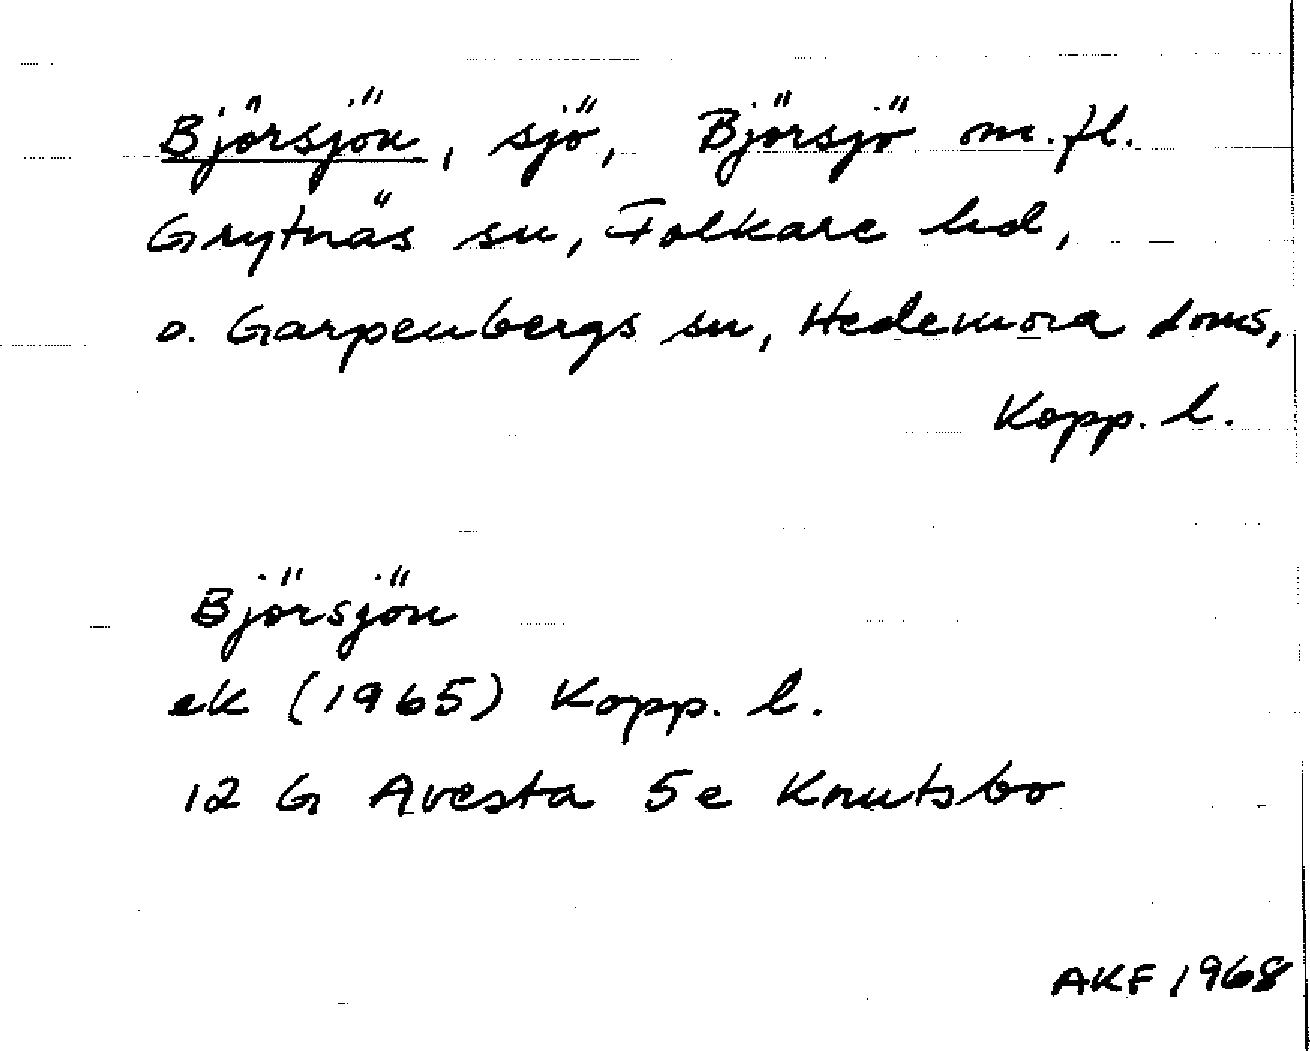 Björsjön, sjö, Björsjö m.fl.
Grytnäs sn, Folkare hd,
o. Garpenbergs sn, Hedemora doms,
Kopp. l.
Björsjön
ek (1965) Kopp. l.
12 G Avesta 5e Knutsbo
AKF 1968